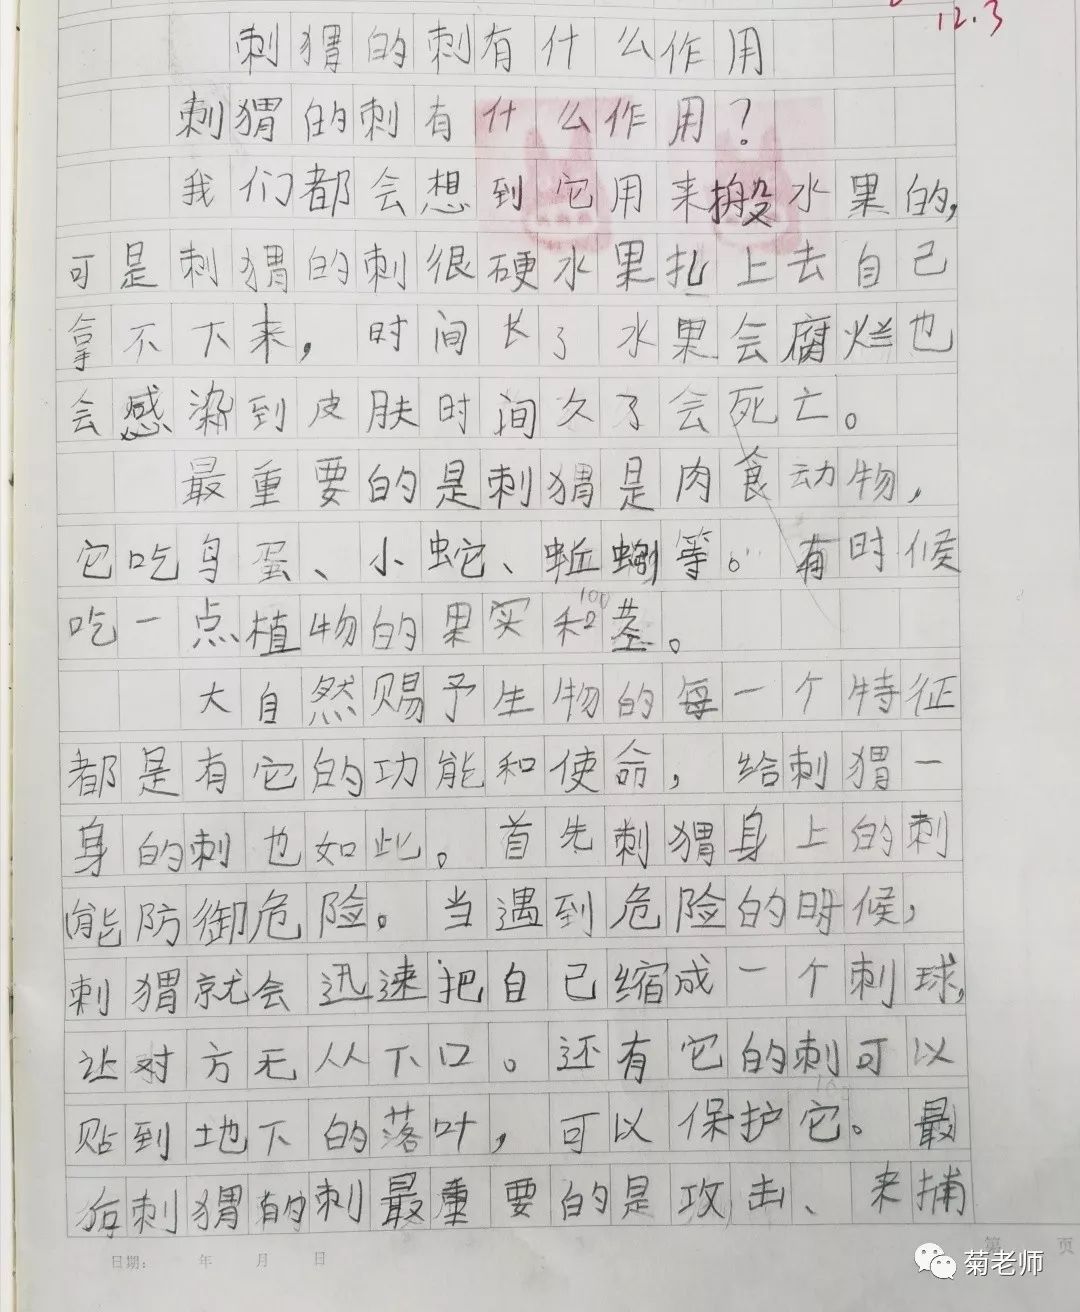 12.3
刺猬的刺有什么作用
刺猬的刺有什么作用？
我们都会想到它用来搬水果的，
可是刺猬的刺很硬水果扎上去自己
拿不下来，时间长了水果会腐烂也
会感染到皮肤时间久了会死亡。
最重要的是刺猬是肉食动物，
它吃鸟蛋、小蛇、蚯蝴等。有时候
吃一点植物的果实和茎。
大自然赐予生物的每一个特征
都是有它的功能和使命，给刺猬一
身的刺也如此。首先刺猬身上的刺
能防御危险。当遇到危险的时候，
刺猬就会迅速把自己缩成一个刺球，
让对方无从下口。还有它的刺可以
贴到地下的落叶，可以保护它。最
后刺猬的刺最重要的是攻击、来捕
日期： 年 月 日
第 页
菊老师